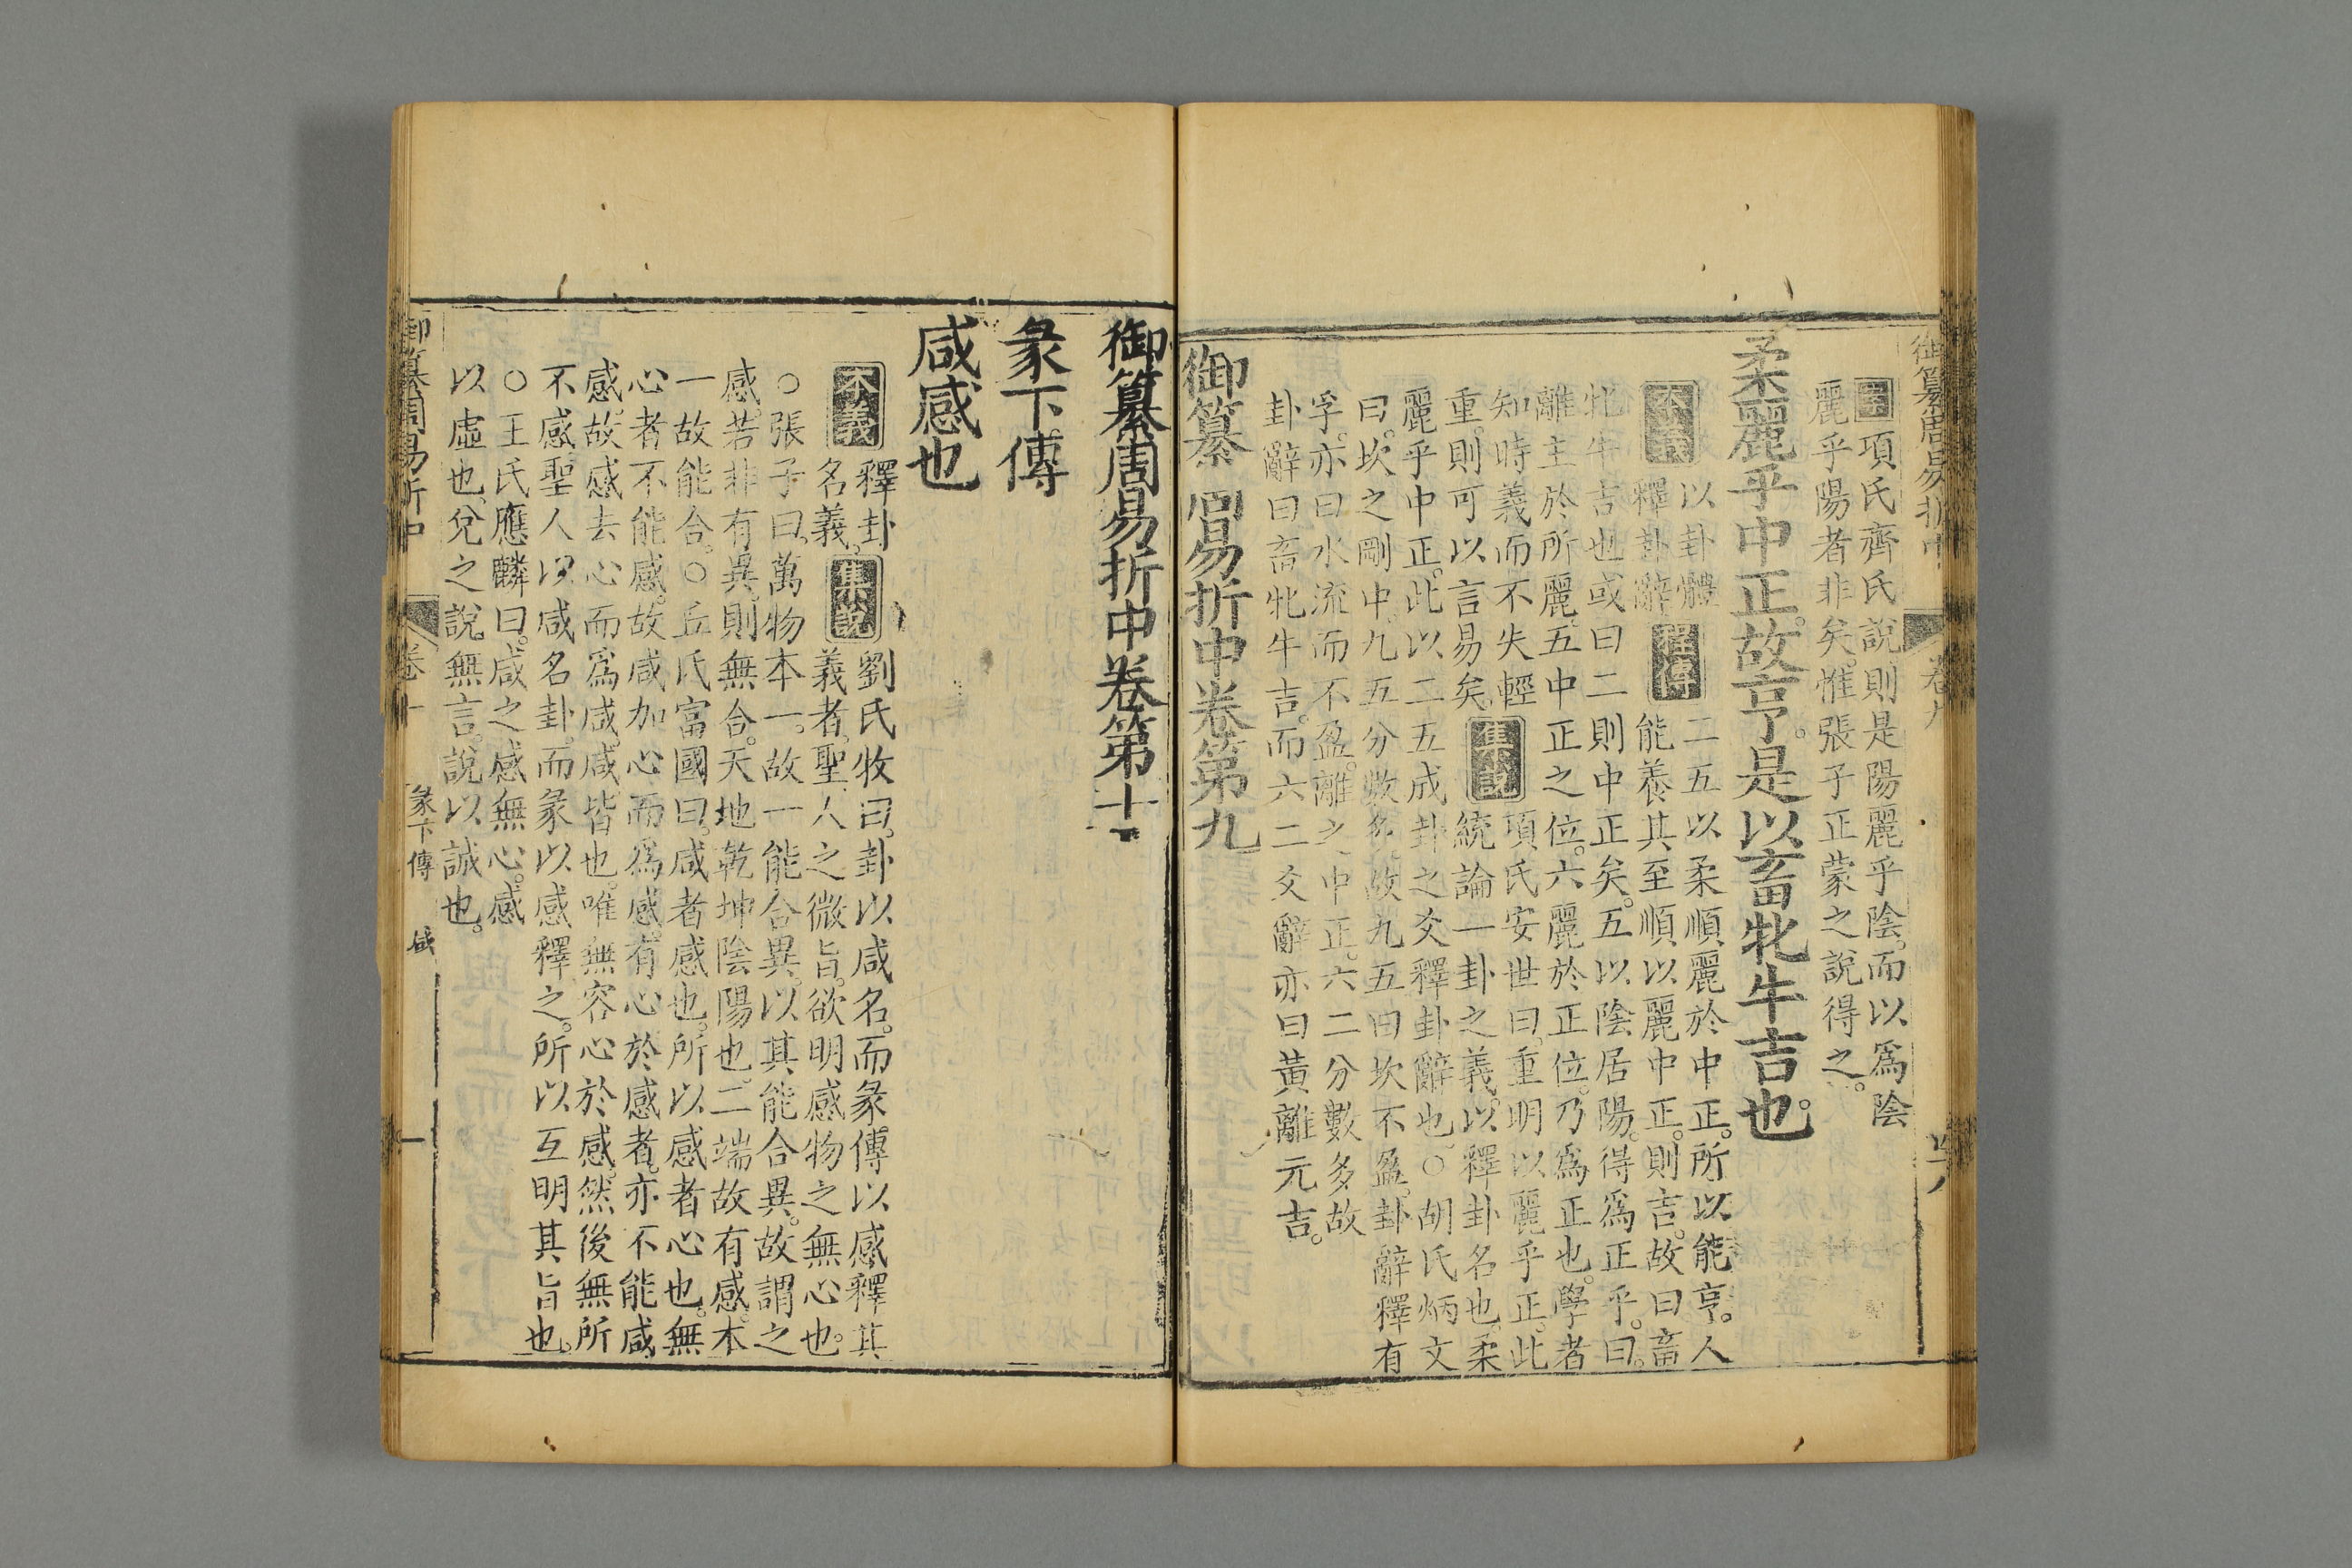 御纂周易折中
卷九
項氏齊氏說則是陽麗乎陰而以爲陰
麗乎陽者非矣惟張子正蒙之說得之。
柔麗乎中正。故亨。是以畜牝牛吉也。
本義 以卦體 程傳 二五以柔順麗於中正。所以能亨。人
釋卦辭 能養其至順以麗中正。則吉。故曰畜
牝牛吉也或曰二則中正矣。五以陰居陽。得爲正乎。曰。
離主於所麗。五中正之位。六麗於正位。乃爲正也。學者
知時義而不失輕 項氏安世曰。重明以麗乎正。此
重。則可以言易矣。 集說 統論一卦之義。以釋卦名也。柔
麗乎中正。此以二五成卦之爻釋卦辭也。○胡氏炳文
曰。坎之剛中。九五分數多故九五曰坎不盈。卦辭釋有
孚。亦曰水流而不盈。離之中正。六二分數多故
卦辭曰畜牝牛吉。而六二爻辭亦曰黃離元吉。
御纂周易折中卷第九
御纂周易折中卷第十
彖下傳
咸感也
本義 釋卦 集說 劉氏牧曰。卦以咸名。而彖傳以感釋其
名義。 義者。聖人之微旨。欲明感物之無心也。
○張子曰。萬物本一。故一能合異。以其能合異。故謂之
感。若非有異。則無合。天地乾坤陰陽也。二端故有感。本
一故能合。○丘氏富國曰。咸者感也。所以感者心也。無
心者不能感。故咸加心而爲感。有心於感者。亦不能咸
感。故感去心而爲咸。咸皆也。唯無容心於感。然後無所
不感。聖人以咸名卦。而彖以感釋之。所以互明其旨也。
○王氏應麟曰。咸之感無心。感
以虛也。兌之說無言。說以誠也。
御纂周易折中
卷十
彖下傳 咸
一